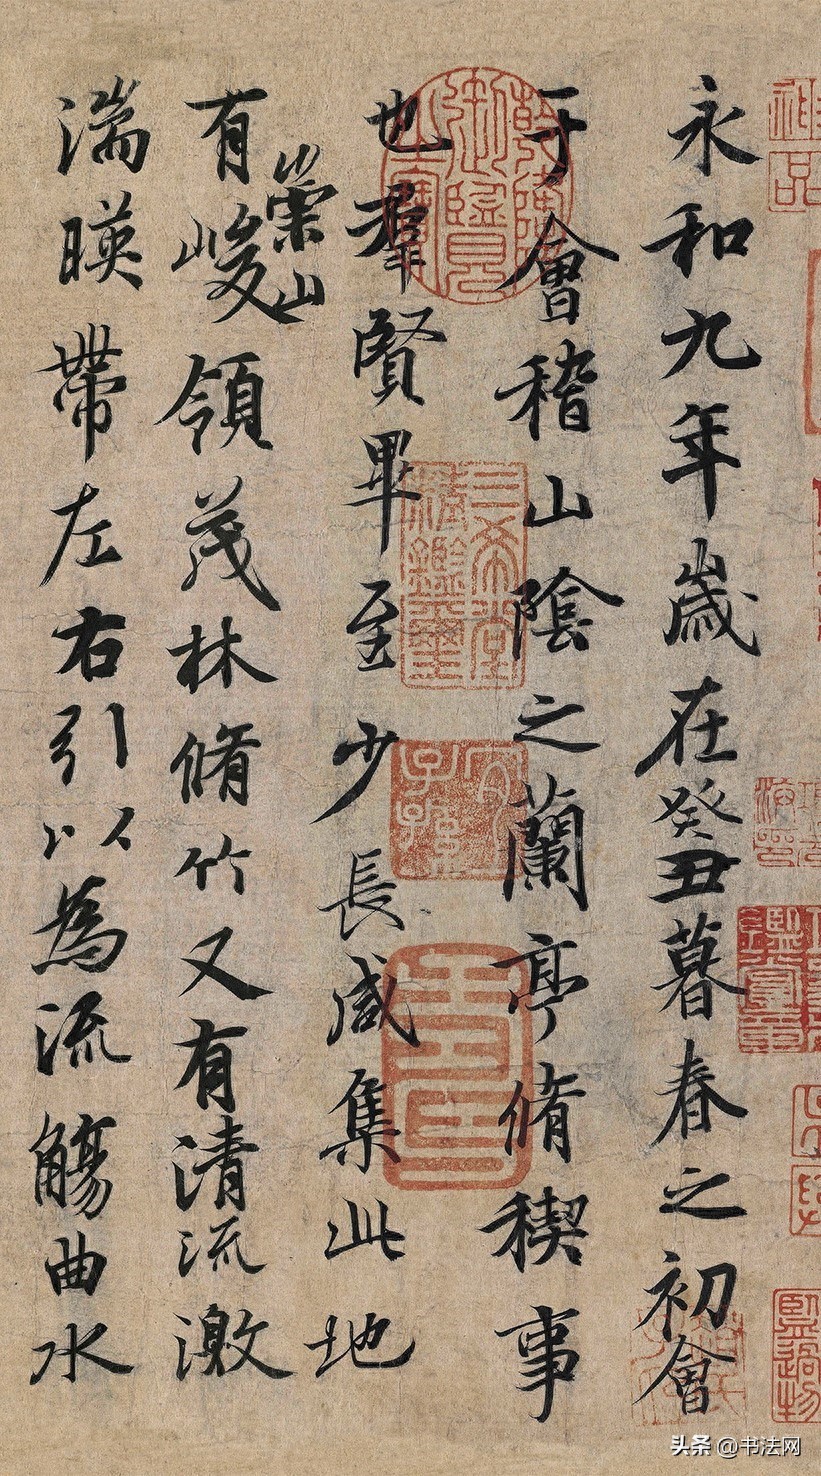 永和九年歲在癸丑暮春之初會
于會稽山陰之蘭亭脩稧事
也羣賢畢至少長咸集此地
有崇山峻領茂林脩竹又有清流激
湍暎帶左右引以為流觴曲水
神品
三希堂精鑑璽
宜子孫
頭条 @书法网